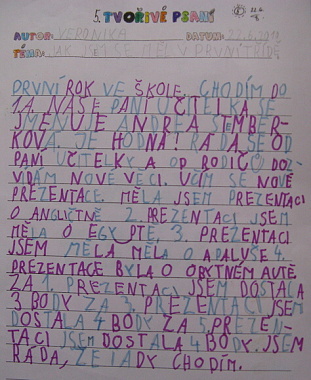 5. TVOŘIVÉ PSANÍ
AUTOR: VERONIKA DATUM: 22.6.2011
TÉMA: JAK JSEM SE MĚL V PRVNÍ TŘÍDĚ
PRVNÍ ROK VE ŠKOLE. CHODÍM DO
1.A. NAŠE PANÍ UČITELKA SE
JMENUJE ANDREA SEMBER-
KOVÁ. JE HODNÁ! RÁDA SE OD
PANÍ UČITELKY A OD RODIČŮ DOZ-
VÍDÁM NOVÉ VĚCI. UČÍM SE NOVÉ
PREZENTACE. MĚLA JSEM PREZENTACI
O ANGLIČTINĚ 2. PREZENTACI JSEM
MĚLA O EGYPTĚ, 3. PREZENTACI
JSEM MĚLA MĚLA O ADALUŠE 4.
PREZENTACE BYLA O OBYTNÉM AUTĚ
ZA 1. PREZENTACI JSEM DOSTALA
3 BODY ZA 3. PREZENTACI JSEM
DOSTALA 4 BODY ZA 5. PREZEN-
TACI JSEM DOSTALA 4 BODY. JSEM
RÁDA, ŽE TADY CHODÍM.